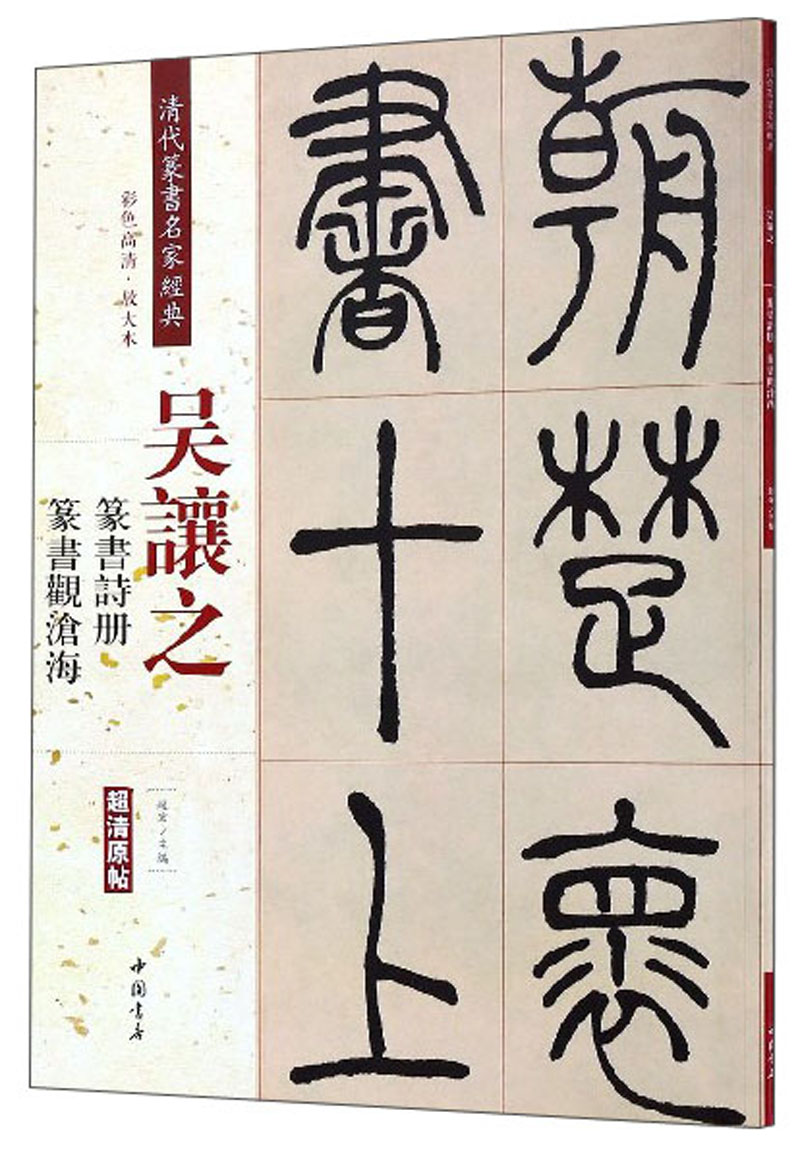 朝楚褱
書十上
清代篆書名家經典
彩色高清·放大本
吴讓之
篆書詩册
篆書觀滄海
趙宏/主編
超清原帖
中国書店